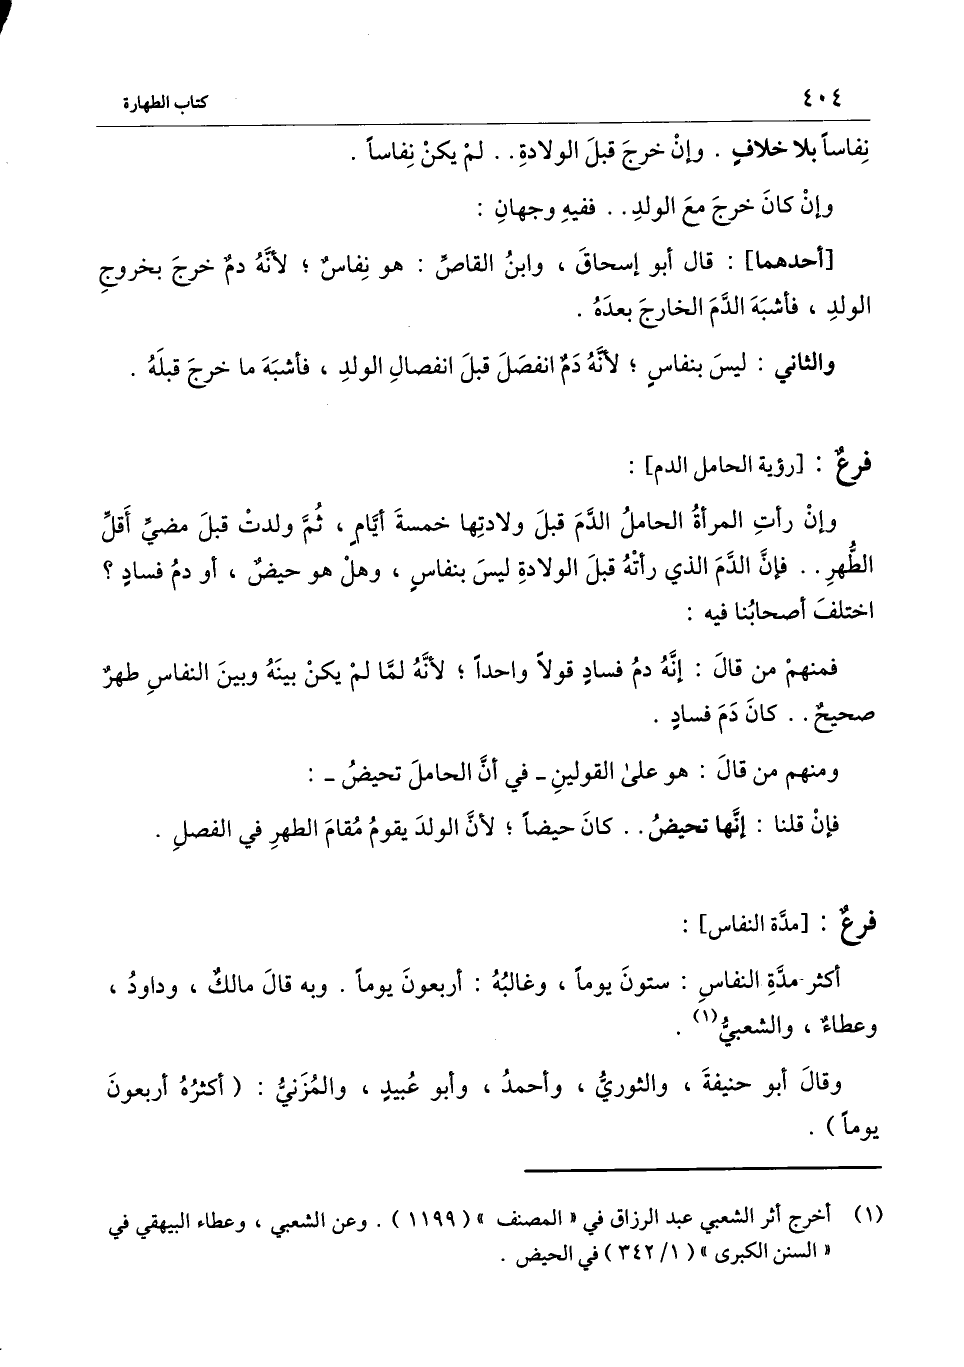 ٤٠٤ كتاب الطهارة
نِفاساً بلا خلافٍ . وإنْ خرجَ قبلَ الولادةِ . . لمْ يكنْ نِفاساً .
وإنْ كانَ خرجَ معَ الولدِ . . ففيهِ وجهانِ :
[أحدهما] : قال أبو إسحاقَ ، وابنُ القاصِّ : هو نِفاسٌ ؛ لأنَّهُ دمٌ خرجَ بخروجِ
الولدِ ، فأشبَهَ الدَّمَ الخارجَ بعدَهُ .
والثاني : ليسَ بنفاسٍ ؛ لأنَّهُ دَمٌ انفصَلَ قبلَ انفصالِ الولدِ ، فأشبَهَ ما خرجَ قبلَهُ .
فرعٌ : [رؤية الحامل الدم] :
وإنْ رأتِ المرأةُ الحاملُ الدَّمَ قبلَ ولادتِها خمسةَ أيَّامٍ ، ثُمَّ ولدتْ قبلَ مضيِّ أَقلِّ
الطُّهرِ . . فإنَّ الدَّمَ الذي رأتْهُ قبلَ الولادةِ ليسَ بنفاسٍ ، وهلْ هو حيضٌ ، أو دمُ فسادٍ ؟
اختلفَ أصحابُنا فيه :
فمنهمْ من قالَ : إنَّهُ دمُ فسادٍ قولاً واحداً ؛ لأنَّهُ لمَّا لمْ يكنْ بينَهُ وبينَ النفاسِ طهرٌ
صحيحٌ . . كانَ دَمَ فسادٍ .
ومنهم من قالَ : هو علىٰ القولينِ ـ في أنَّ الحاملَ تحيضُ ـ :
فإنْ قلنا : إنَّها تحيضُ . . كانَ حيضاً ؛ لأنَّ الولدَ يقومُ مُقامَ الطهرِ في الفصلِ .
فرعٌ : [مدَّة النفاس] :
أكثر مدَّةِ النفاسِ : ستونَ يوماً ، وغالبُهُ : أربعونَ يوماً . وبه قالَ مالكٌ ، وداودُ ،
وعطاءٌ ، والشعبيُّ(١) .
وقالَ أبو حنيفةَ ، والثوريُّ ، وأحمدُ ، وأبو عُبيدٍ ، والمُزَنيُّ : ( أكثرُهُ أربعونَ
يوماً ) .
(١) أخرج أثر الشعبي عبد الرزاق في « المصنف » ( ١١٩٩ ) . وعن الشعبي ، وعطاء البيهقي في
« السنن الكبرى » ( ١/ ٣٤٢ ) في الحيض .